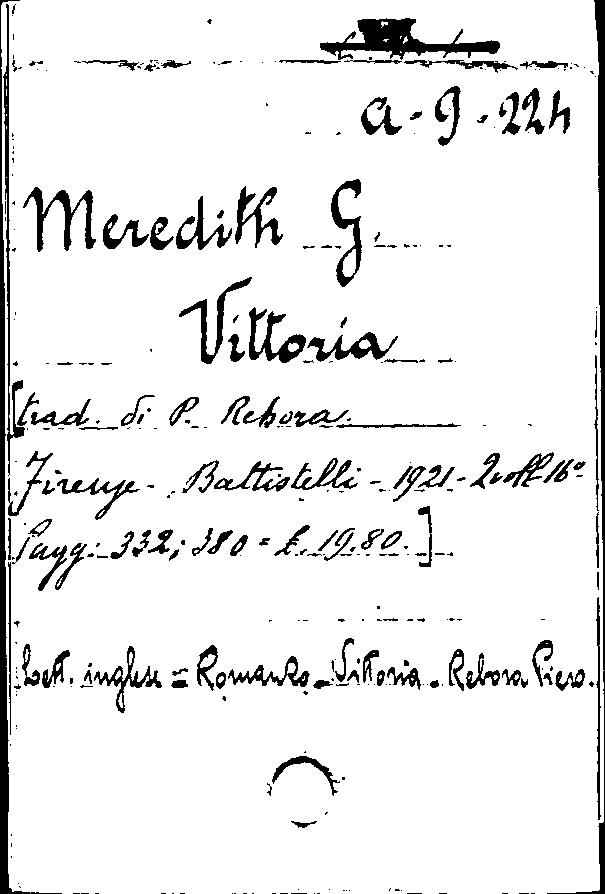 a-9-22h
Meredith G.
Vittoria
[trad. di P. Rebora.
Firenze - Battistelli - 1921 - 2 voll 16°
Pagg: 332; 380 = £. 19.80.]
Lett. inglese = Romanzo - Vittoria - Rebora Piero.